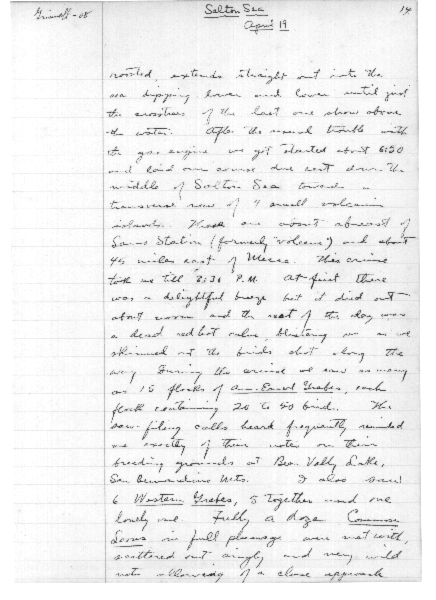 Grinnell-08
Salton Sea
14
April 19
roosted, extends straight out into the
sea dipping lower and lower until just
the crosstrees of the last one show above
the water. After the usual trouble with
the gas engine we got started about 6:30
and laid our course due east down the
middle of Salton Sea toward a
transverse row of 4 small volcanic
islands. These are about abreast of
Station (formerly "volcano") and about
45 miles east of Mecca. This cruise
took us till 8:30 P.M. At first there
was a delightful breeze but it died out
about noon and the rest of the day was
a dead redhot calm, blistering us as we
skinned out the birds shot along the
way. During the cruise we saw as many
as 15 flocks of Am. Eared Grebes, each
flock containing 20 to 50 birds. The
saw-filing calls heard frequently reminded
me exactly of their notes on their
breeding grounds at Bear Valley Lake,
San Bernardino Mts. I also saw
6 Western Grebes, 5 together and one
lonely one. Fully a doze Common
Loons in full plumage were met with,
scattered out singly and very wild
not allowing of a close approach